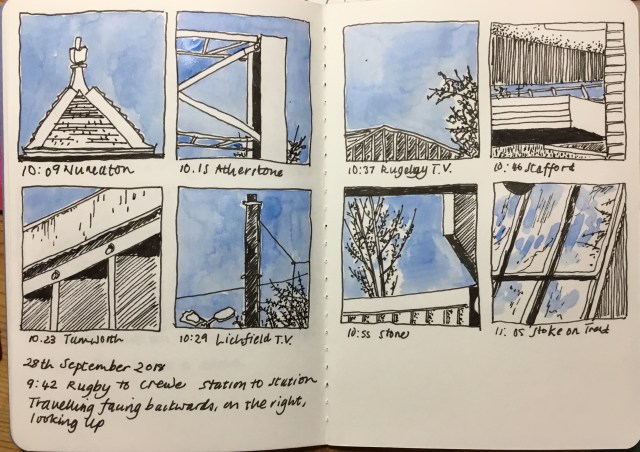 10:09 Nuneaton
10.15 Atherstone
10:37 Rugeley T.V.
10:46 Stafford
10.23 Tamworth
10:29 Lichfield T.V.
10:55 Stone
11.05 Stoke on Trent
28th September 2018
9:42 Rugby to Crewe Station to Station
Travelling facing backwards, on the right,
looking up